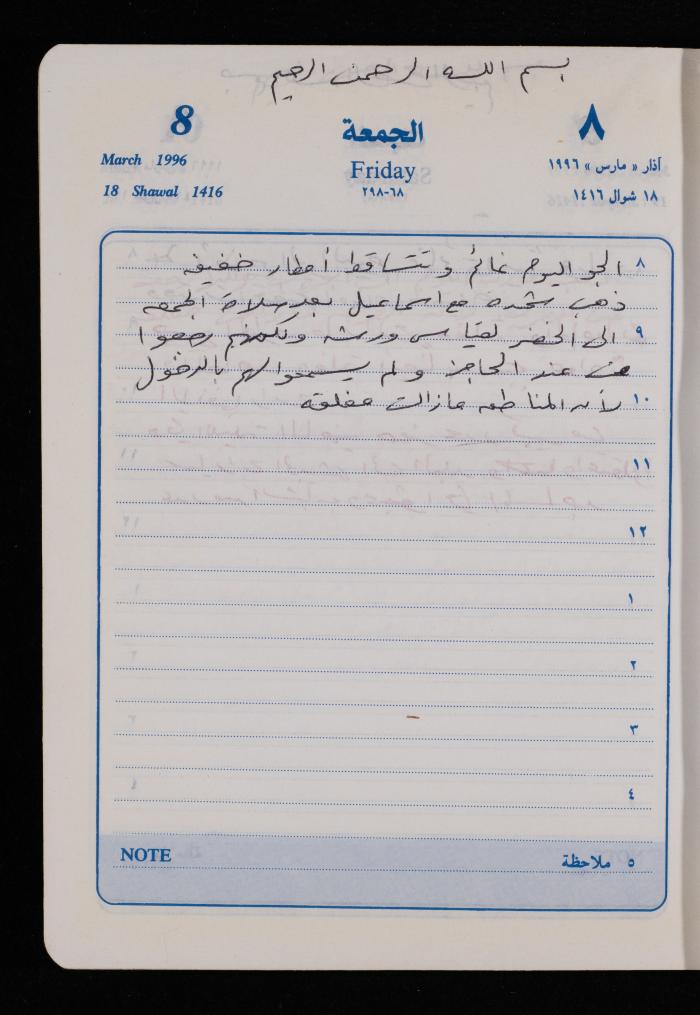 بسم الله الرحمن الرحيم
8 الجمعة ٨
March 1996 Friday آذار « مارس » ١٩٩٦
18 Shawal 1416 ٦٨-٢٩٨ ١٨ شوال ١٤١٦
٨ الجو اليوم غائم وتتساقط أمطار خفيفه
ذهب شحده مع اسماعيل بعد صلاة الجمعه
٩ الى الخضر لقياس ورشه ولكنهم رجعوا
من عند الحاجز ولم يسمحوا لهم بالدخول
١٠ لأن المناطق مازالت مغلقه
١١
١٢
١
٢
٣
٤
NOTE ٥ ملاحظة